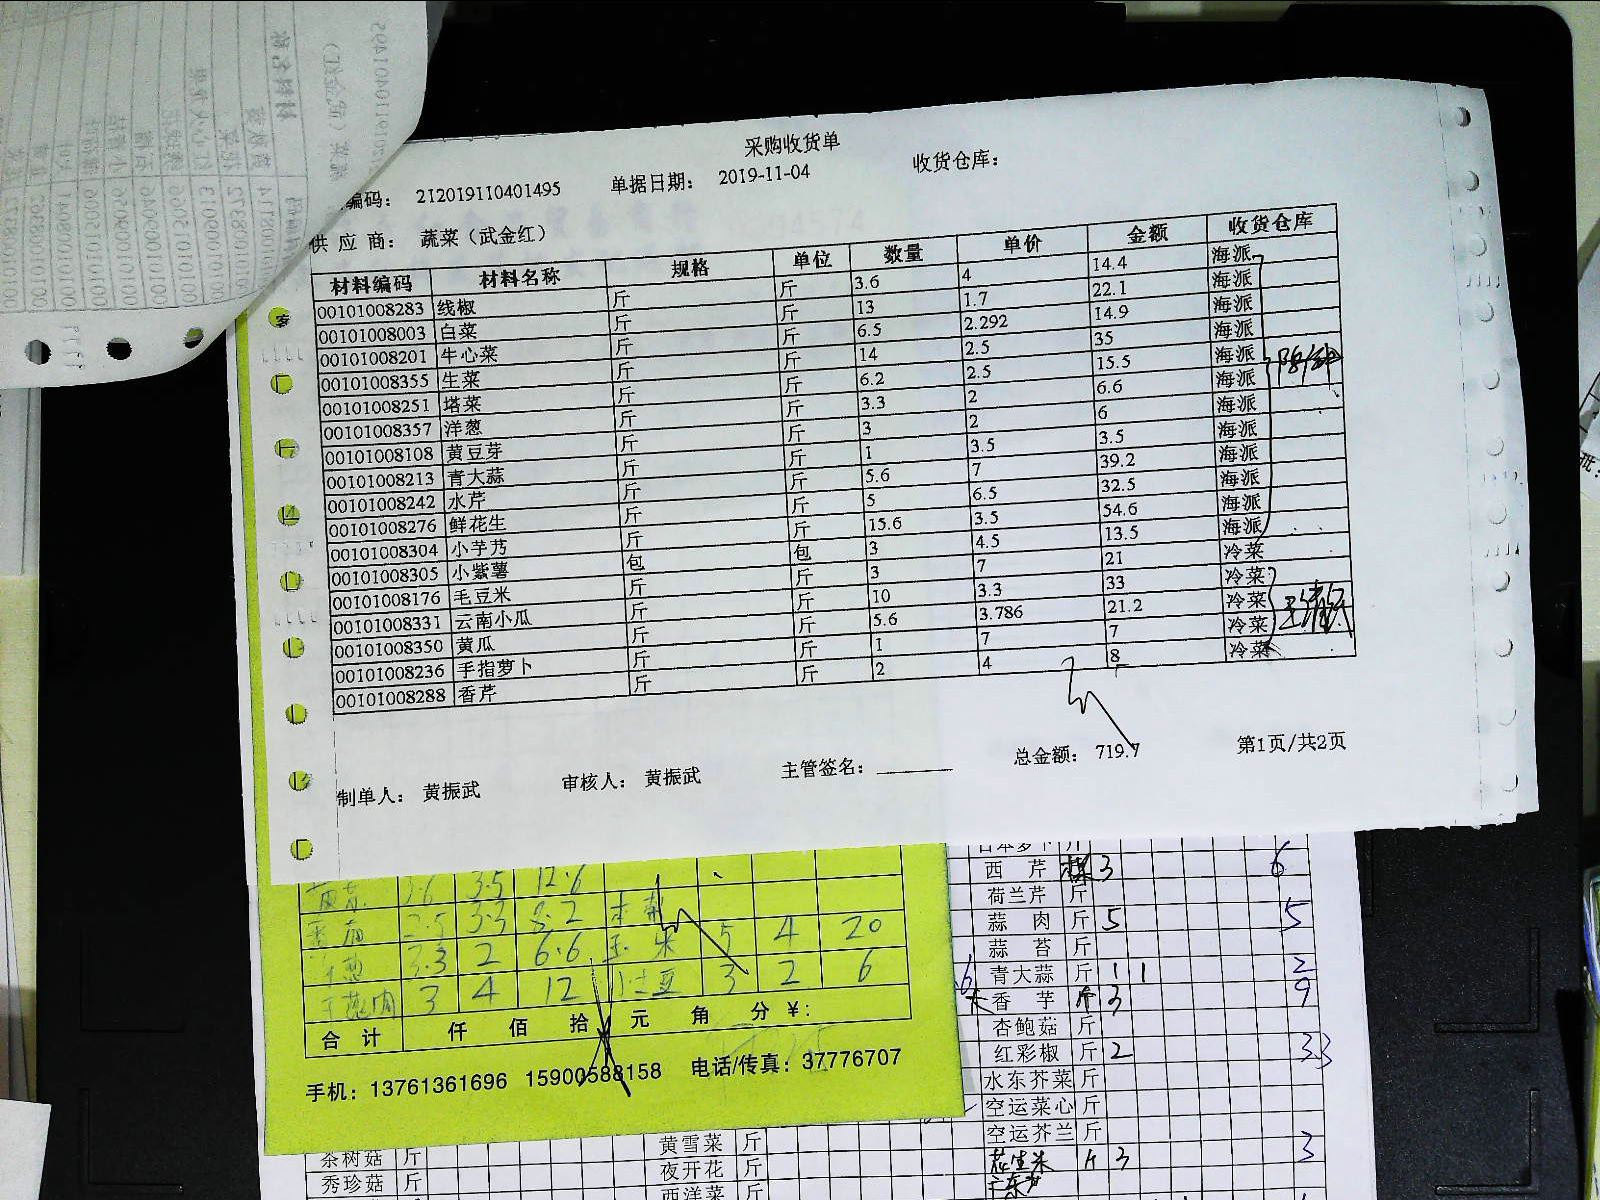 采购收货单
编码： 212019110401495 单据日期： 2019-11-04 收货仓库：
供 应 商： 蔬菜（武金红）
材料编码 材料名称 规格 单位 数量 单价 金额 收货仓库
00101008283 线椒 斤 斤 3.6 4 14.4 海派
00101008003 白菜 斤 斤 13 1.7 22.1 海派
00101008201 牛心菜 斤 斤 6.5 2.292 14.9 海派
00101008355 生菜 斤 斤 14 2.5 35 海派
00101008251 塔菜 斤 斤 6.2 2.5 15.5 海派
00101008357 洋葱 斤 斤 3.3 2 6.6 海派
00101008108 黄豆芽 斤 斤 3 2 6 海派
00101008213 青大蒜 斤 斤 1 3.5 3.5 海派
00101008242 水芹 斤 斤 5.6 7 39.2 海派
00101008276 鲜花生 斤 斤 5 6.5 32.5 海派
00101008304 小芋艿 斤 斤 15.6 3.5 54.6 海派
00101008305 小紫薯 包 包 3 4.5 13.5 海派
00101008176 毛豆米 斤 斤 3 7 21 冷菜
00101008331 云南小瓜 斤 斤 10 3.3 33 冷菜
00101008350 黄瓜 斤 斤 5.6 3.786 21.2 冷菜
00101008236 手指萝卜 斤 斤 1 7 7 冷菜
00101008288 香芹 斤 斤 2 4 8 冷菜
总金额： 719.7 第1页/共2页
制单人： 黄振武 审核人： 黄振武 主管签名：
3.6 3.5 12.6
2.5 3.3 8.2
3.3 2 6.6 玉米 5 4 20
3 4 12 小土豆 3 2 6
合 计 仟 佰 拾 元 角 分 ￥:
手机：13761361696 15900588158 电话/传真：37776707
日本萝卜 斤
西 芹 3 6
荷兰芹 斤
蒜 肉 斤 5 5
蒜 苔 斤
青大蒜 斤 1 1 2
香 芋 斤 3 9
杏鲍菇 斤
红彩椒 斤 2 33
水东芥菜 斤
空运菜心 斤
空运芥兰 斤
花生米 斤 3 3
黄雪菜 斤
夜开花 斤
西洋菜 斤
茶树菇 斤
秀珍菇 斤